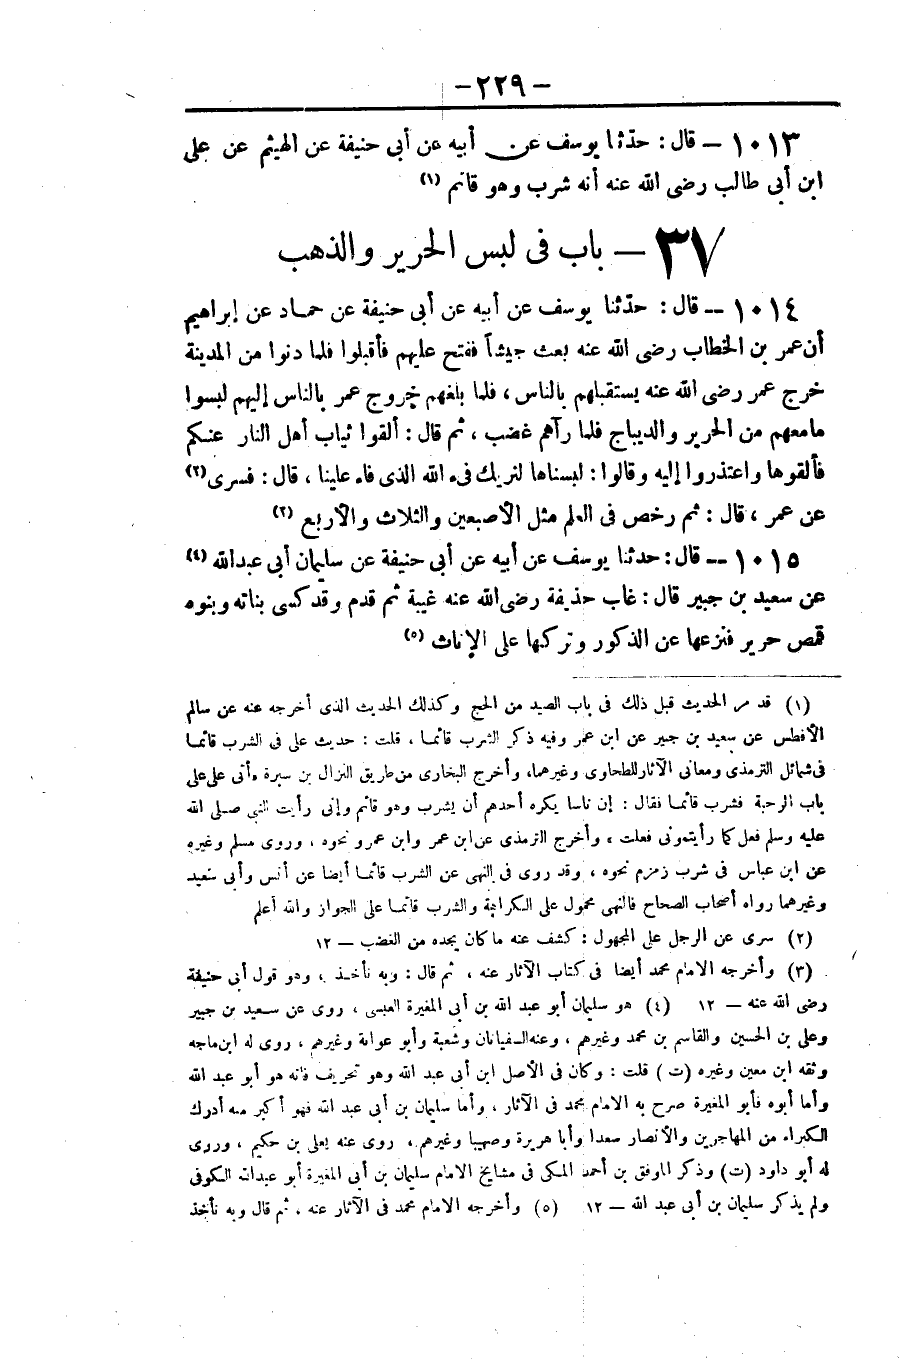 - ٢٢٩ -
١٠١٣ - قال : حدثنا يوسف عن أبيه عن أبى حنيفة عن الهيثم عن على
ابن أبى طالب رضى الله عنه أنه شرب وهو قائم (١)
٣٧ - باب فى لبس الحرير والذهب
١٠١٤ - قال : حدثنا يوسف عن أبيه عن أبى حنيفة عن حماد عن إبراهيم
أن عمر بن الخطاب رضى الله عنه بعث جيشاً ففتح عليهم فأقبلوا فلما دنوا من المدينة
خرج عمر رضى الله عنه يستقبلهم بالناس ، فلما بلغهم خروج عمر بالناس إليهم لبسوا
مامعهم من الحرير والديباج فلما رآهم غضب ، ثم قال : ألقوا ثياب أهل النار عنكم
فألقوها واعتذروا إليه وقالوا : لبسناها لنريك فىء الله الذى فاء علينا ، قال : فسرى (٢)
عن عمر ، قال : ثم رخص فى العلم مثل الأصبعين والثلاث والأربع (٣)
١٠١٥ - قال : حدثنا يوسف عن أبيه عن أبى حنيفة عن سليمان أبى عبدالله (٤)
عن سعيد بن جبير قال : غاب حذيفة رضى الله عنه غيبة ثم قدم وقد كسى بناته وبنوه
قمص حرير فنزعها عن الذكور وتركها على الإناث (٥)
(١) قد مر الحديث قبل ذلك فى باب الصيد من الحج وكذلك الحديث الذى أخرجه عنه عن سالم
الأفطس عن سعيد بن جبير عن ابن عمر وفيه ذكر الشرب قائما ، قلت : حديث على فى الشرب قائما
فى شمائل الترمذى ومعانى الآثار للطحاوى وغيرهما، وأخرج البخارى من طريق النزال بن سبرة «أتى على على
باب الرحبة فشرب قائما فقال : إن ناسا يكره أحدهم أن يشرب وهو قائم وإنى رأيت النبى صلى الله
عليه وسلم فعل كما رأيتمونى فعلت » وأخرج الترمذى عن ابن عمر وابن عمرو نحوه ، وروى مسلم وغيره
عن ابن عباس فى شرب زمزم نحوه ، وقد روى فى النهى عن الشرب قائما أيضا عن أنس وأبى سعيد
وغيرهما رواه أصحاب الصحاح فالنهى محمول على الكراهة والشرب قائما على الجواز والله أعلم
(٢) سرى عن الرجل على المجهول : كشف عنه ما كان يجده من الغضب - ١٢
(٣) وأخرجه الامام محمد أيضا فى كتاب الآثار عنه ، ثم قال : وبه نأخذ ، وهو قول أبى حنيفة
رضى الله عنه - ١٢ (٤) هو سليمان أبو عبد الله بن أبى المغيرة العبسى ، روى عن سعيد بن جبير
وعلى بن الحسين والقاسم بن محمد وغيرهم ، وعنه السفيانان وشعبة وأبو عوانة وغيرهم ، روى له ابن ماجه
وثقه ابن معين وغيره (ت) قلت : وكان فى الأصل ابن أبى عبد الله وهو تحريف فانه هو أبو عبد الله
وأما أبوه فأبو المغيرة صرح به الامام محمد فى الآثار ، وأما سليمان بن أبى عبد الله فهو أكبر منه أدرك
الكبراء من المهاجرين والأنصار سعدا وأبا هريرة وصهيبا وغيرهم ، روى عنه يعلى بن حكيم ، وروى
له أبو داود (ت) وذكر الموفق بن أحمد المكى فى مشايخ الامام سليمان بن أبى المغيرة أبو عبدالله الكوفى
ولم يذكر سليمان بن أبى عبد الله - ١٢ (٥) وأخرجه الامام محمد فى الآثار عنه ، ثم قال وبه نأخذ